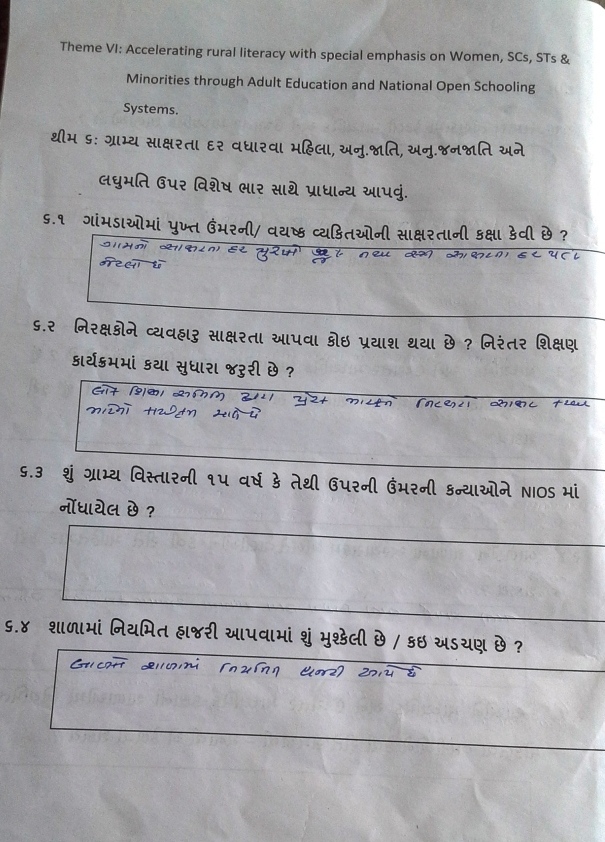 Theme VI: Accelerating rural literacy with special emphasis on Women, SCs, STs &
Minorities through Adult Education and National Open Schooling
Systems.
થીમ ૬: ગ્રામ્ય સાક્ષરતા દર વધારવા મહિલા, અનુ.જાતિ, અનુ.જનજાતિ અને
લઘુમતિ ઉપર વિશેષ ભાર સાથે પ્રાધાન્ય આપવું.
૬.૧ ગાંમડાઓમાં પુખ્ત ઉંમરની/ વયષ્ક વ્યકિતઓની સાક્ષરતાની કક્ષા કેવી છે ?
ગામનો સાક્ષરતા દર પુરુષો તથા સ્ત્રી સાક્ષરતા દર
જેટલો છે
૬.૨ નિરક્ષકોને વ્યવહારુ સાક્ષરતા આપવા કોઇ પ્રયાશ થયા છે ? નિરંતર શિક્ષણ
કાર્યક્રમમાં કયા સુધારા જરુરી છે ?
લોક શિક્ષા સમિતિ દ્વારા સાક્ષર
માટેનો
૬.૩ શું ગ્રામ્ય વિસ્તારની ૧૫ વર્ષ કે તેથી ઉપરની ઉંમરની કન્યાઓને NIOS માં
નોંધાયેલ છે ?
૬.૪ શાળામાં નિયમિત હાજરી આપવામાં શું મુશ્કેલી છે / કઇ અડચણ છે ?
બાળકો શાળામાં નિયમિત હાજરી આપે છે